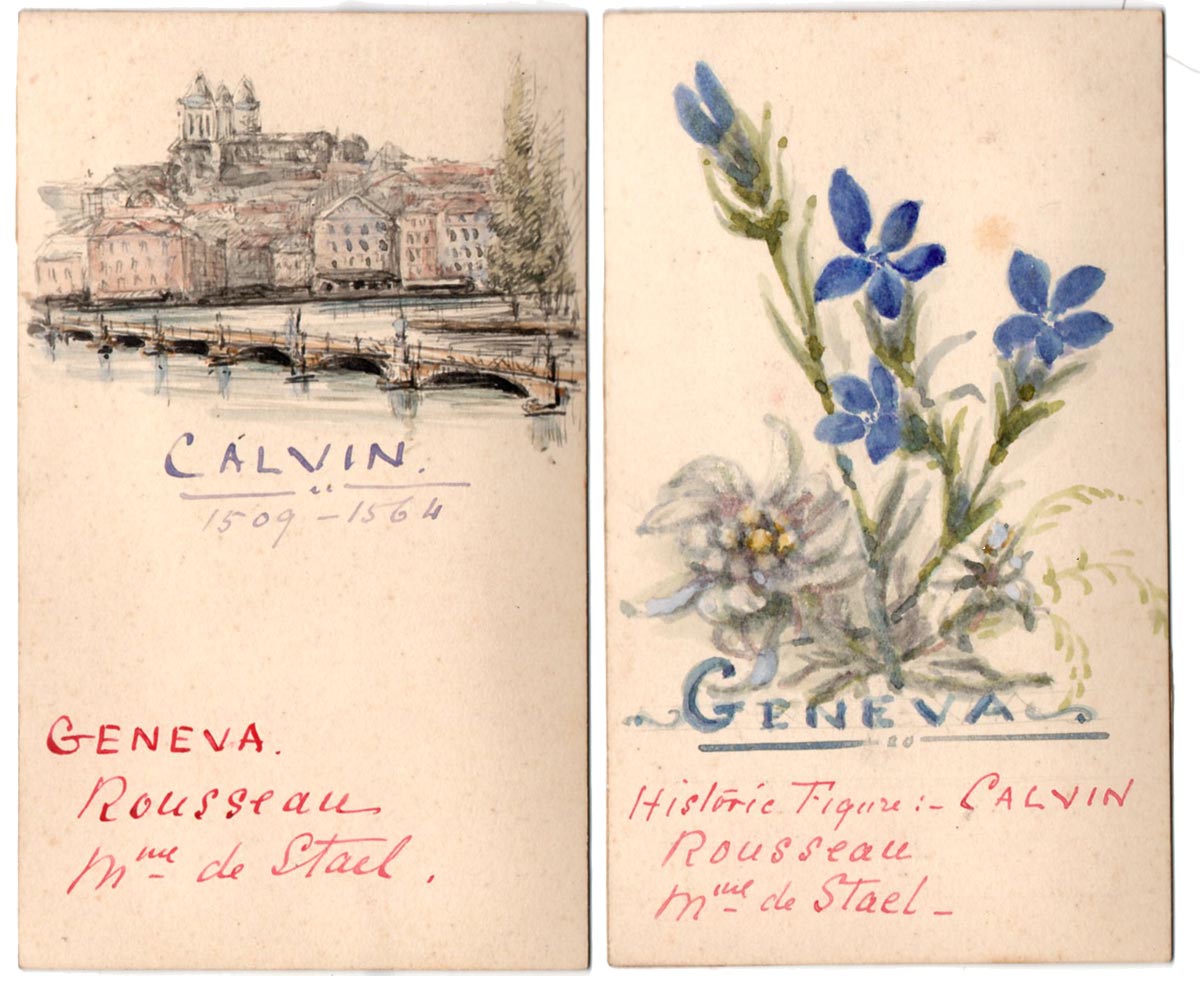 CALVIN.
1509 - 1564
GENEVA.
Rousseau
Mme de Stael.
GENEVA.
Historic Figure:- CALVIN
Rousseau
Mme de Stael -